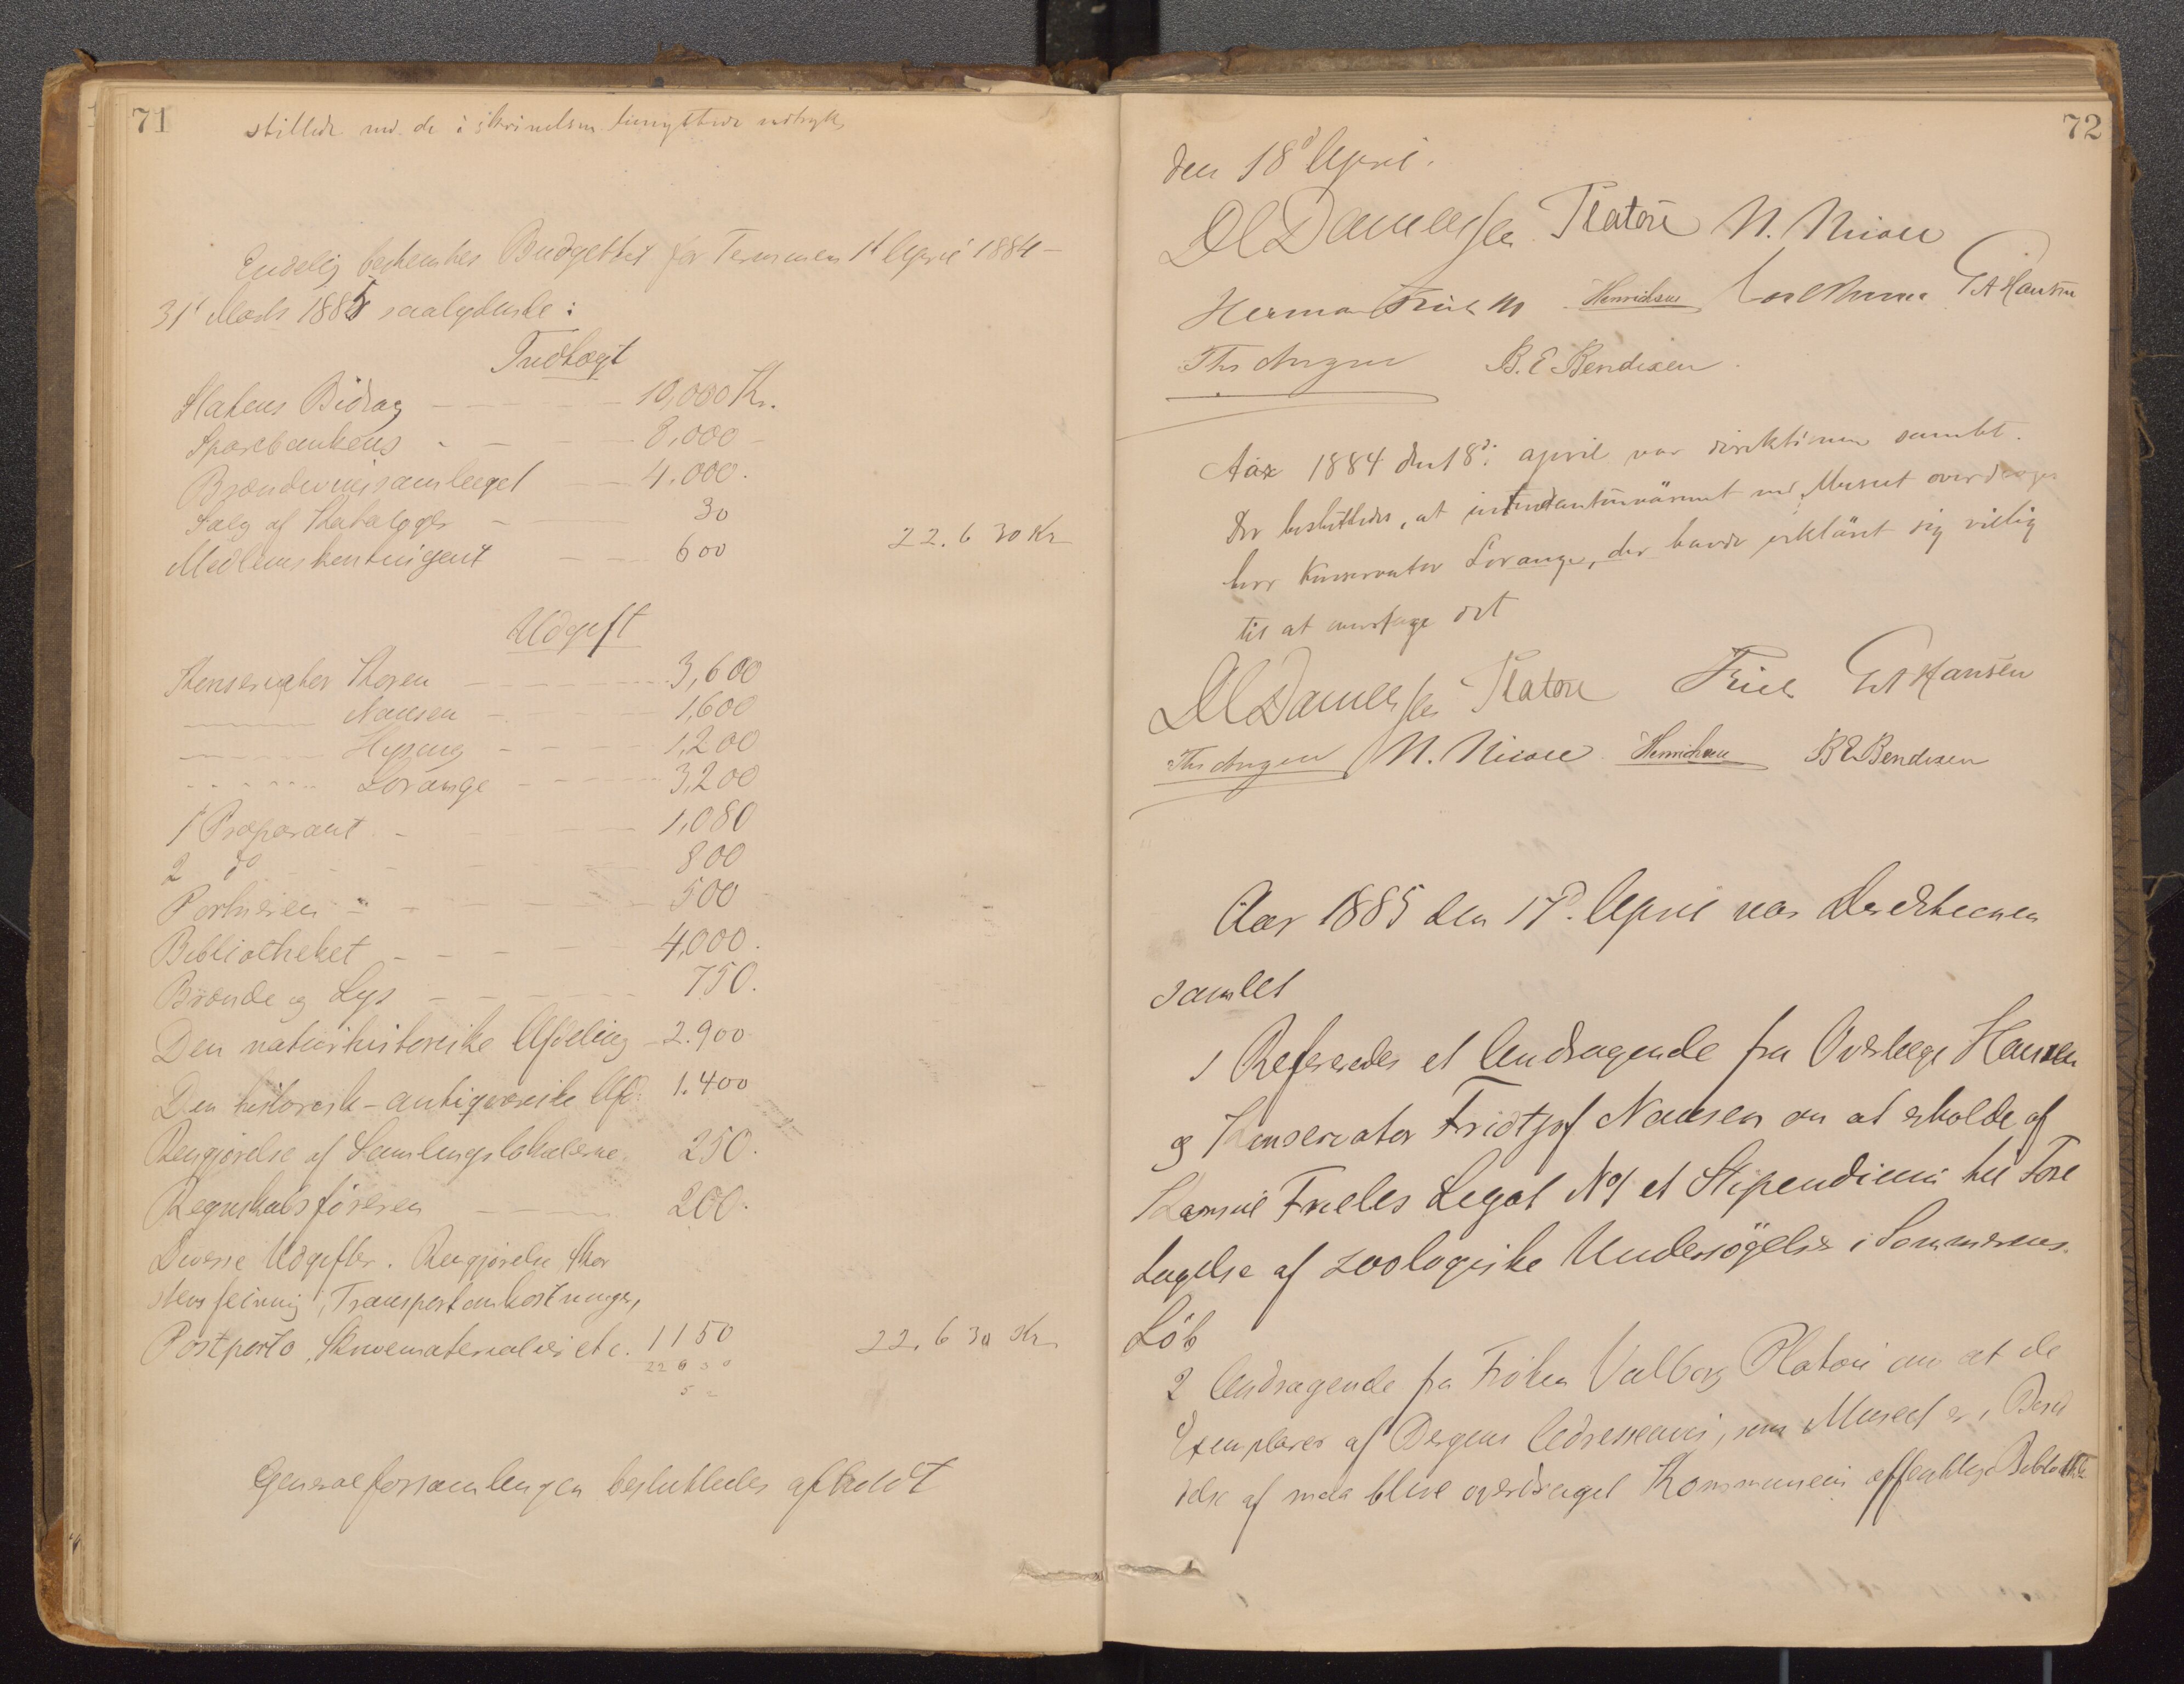 71
stillede med de i skrivelsen benyttede udtryk,
Endelig bestemtes Budgettet for Terminen 1ste April 1884 –
31te Marts 1885 saalydende :
Indtægt
Statens Bidrag – – – 10,000 Kr.
Sparebankens – – – 8,000 –
Brændevinssamlaget – – 4.000.
Salg af Kataloger – – 30
Medlemskontingent – – 600 22.630 Kr
Udgift
Konservator Koren – – – 3,600
– – Nansen – – – 1,600
– – Hysing – – – 1,200
– – Lorange – – – 3,200
1 Præparant – – – 1,080
2 do – – – 800
Portneren – – – 500
Bibliotheket – – – 4,000.
Brænde og Lys – – – 750.
Den naturhistoriske Afdeling – 2.900
Den historisk-antiqvariske Afd. 1.400
Rengjørelse af Samlingslokalerne. 250.
Regnskabsføreren – – – 200.
Diverse Udgifter. Rengjørelse, Skor
stensfeining, Transportomkostninger,
Postporto, Skrivematerialier etc. 1150 22.630 Kr
22630
Generalforsamlingen besluttedes afholdt
72
den 18d April.
DC Danielssen Platou N. Nicoll
Herman Friele Henrichsen GA Hansen
B. E. Bendixen
Aar 1884 den 18d: april var direktionen samlet.
Der besluttedes, at intendantembedet ved Museet overdrages
herr Konservator Lorange, der havde erkläret sig villig
til at overtage det
DC Danielssen Platou Friele GA Hansen
N. Nicoll Henrichsen B E Bendixen
Aar 1885 den 17d. April var Direktionen
samlet
1 Refereredes et Andragende fra Overlæge Hansen
og Konservator Fridtjof Nansen om at erholde af
Frieles Legat No 1 et Stipendium til Fore
tagelse af zoologiske Undersögelser i Sommerens
Löb
2 Andragende fra Frøken Valborg Platou om at de
Exemplarer af Bergens Adresseavis, som Museet er i Besid
delse af maa blive overdraget Kommunens offentlige Bibliothek